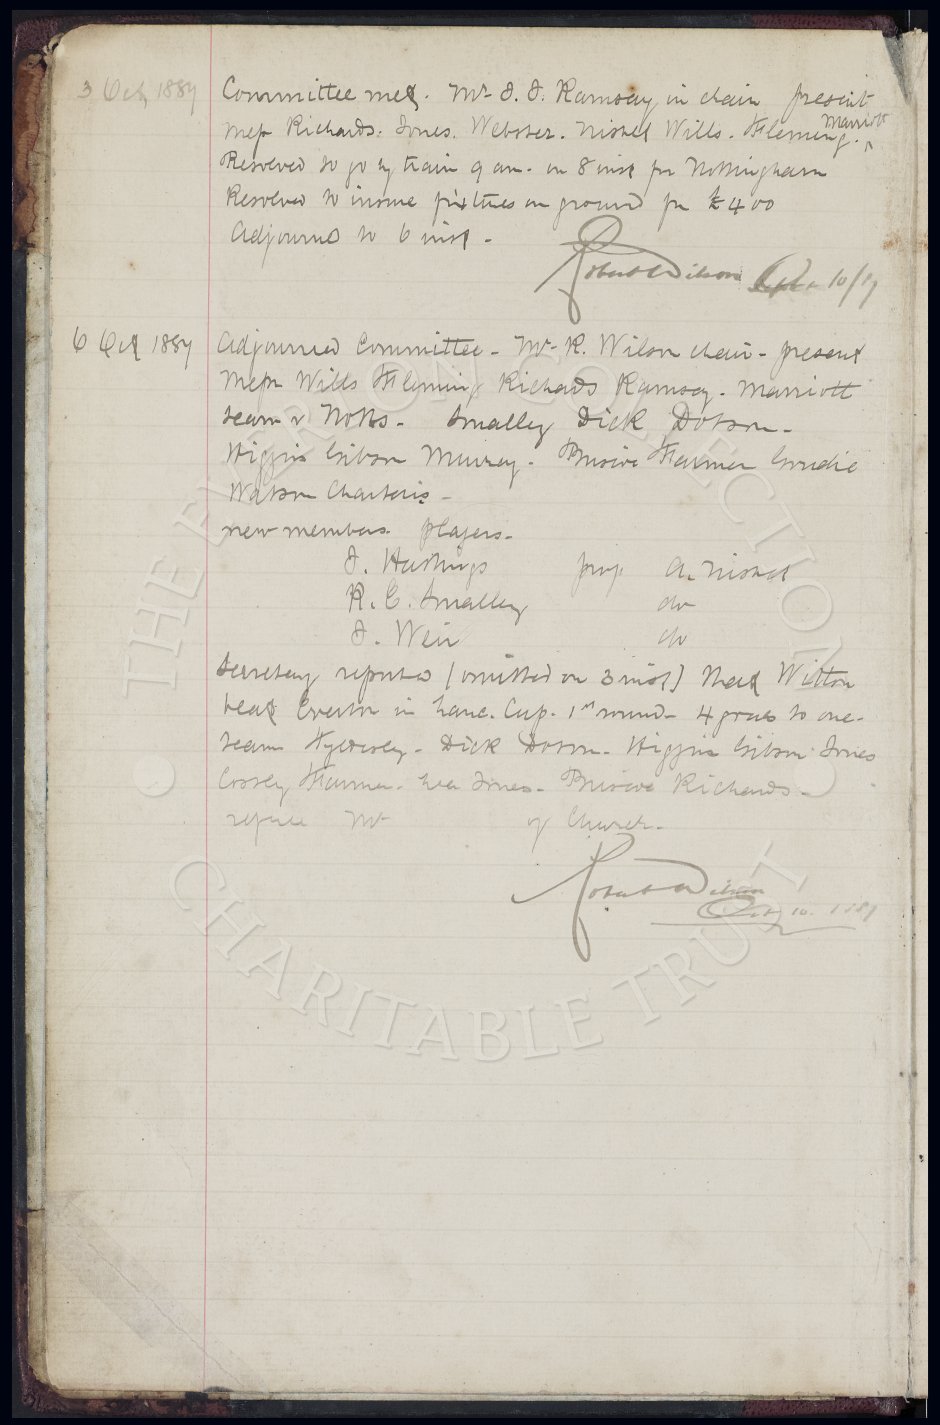 3 Oct 1887 Committee met. Mr J. J. Ramsay in chair present
Messrs Richards. Jones. Webster. Nisbet Wills. Fleming. Marriott
Resolved to go by train 9 am. on 8 inst for Nottingham
Resolved to insure fixtures on ground for £400
Adjourned to 6 inst -
Robert Wilson Oct 10/87
6 Oct 1887 Adjourned Committee - Mr R. Wilson chair - present
Messrs Wills Fleming Richards Ramsay - Marriott
team v Notts - Smalley Dick Dobson -
Higgins Gibson Murray - Briscoe Farmer Goudie
Watson Charteris -
new members players -
J. Hastings prop A. Nisbet
R. E. Smalley do
J. Weir do
Secretary reported (omitted on 3 inst) that Witton
beat Everton in Lanc. Cup. 1st round - 4 goals to one -
team Dick Dobson - Higgins Gibson Jones
Farmer - Jones - Briscoe Richards -
referee Mr of Church -
Robert Wilson
Oct 10. 1887
THE EVERTON COLLECTION
CHARITABLE TRUST